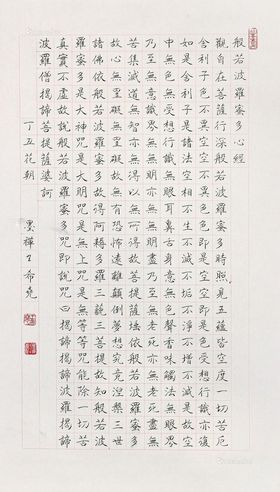 般若波羅蜜多心經
觀自在菩薩行深般若波羅蜜多時照見五蘊皆空度一切苦厄
舍利子色不異空空不異色色即是空空即是色受想行識亦復
如是舍利子是諸法空相不生不滅不垢不淨不增不減是故空
中無色無受想行識無眼耳鼻舌身意無色聲香味觸法無眼界
乃至無意識界無無明亦無無明盡乃至無老死亦無老死盡無
苦集滅道無智亦無得以無所得故菩提薩埵依般若波羅蜜多
故心無罣礙無罣礙故無有恐怖遠離顛倒夢想究竟涅槃三世
諸佛依般若波羅蜜多故得阿耨多羅三藐三菩提故知般若波
羅蜜多是大神咒是大明咒是無上咒是無等等咒能除一切苦
真實不虛故說般若波羅蜜多咒即說咒曰揭諦揭諦波羅揭諦
波羅僧揭諦菩提薩婆訶
丁丑花朝
墨禪王希堯